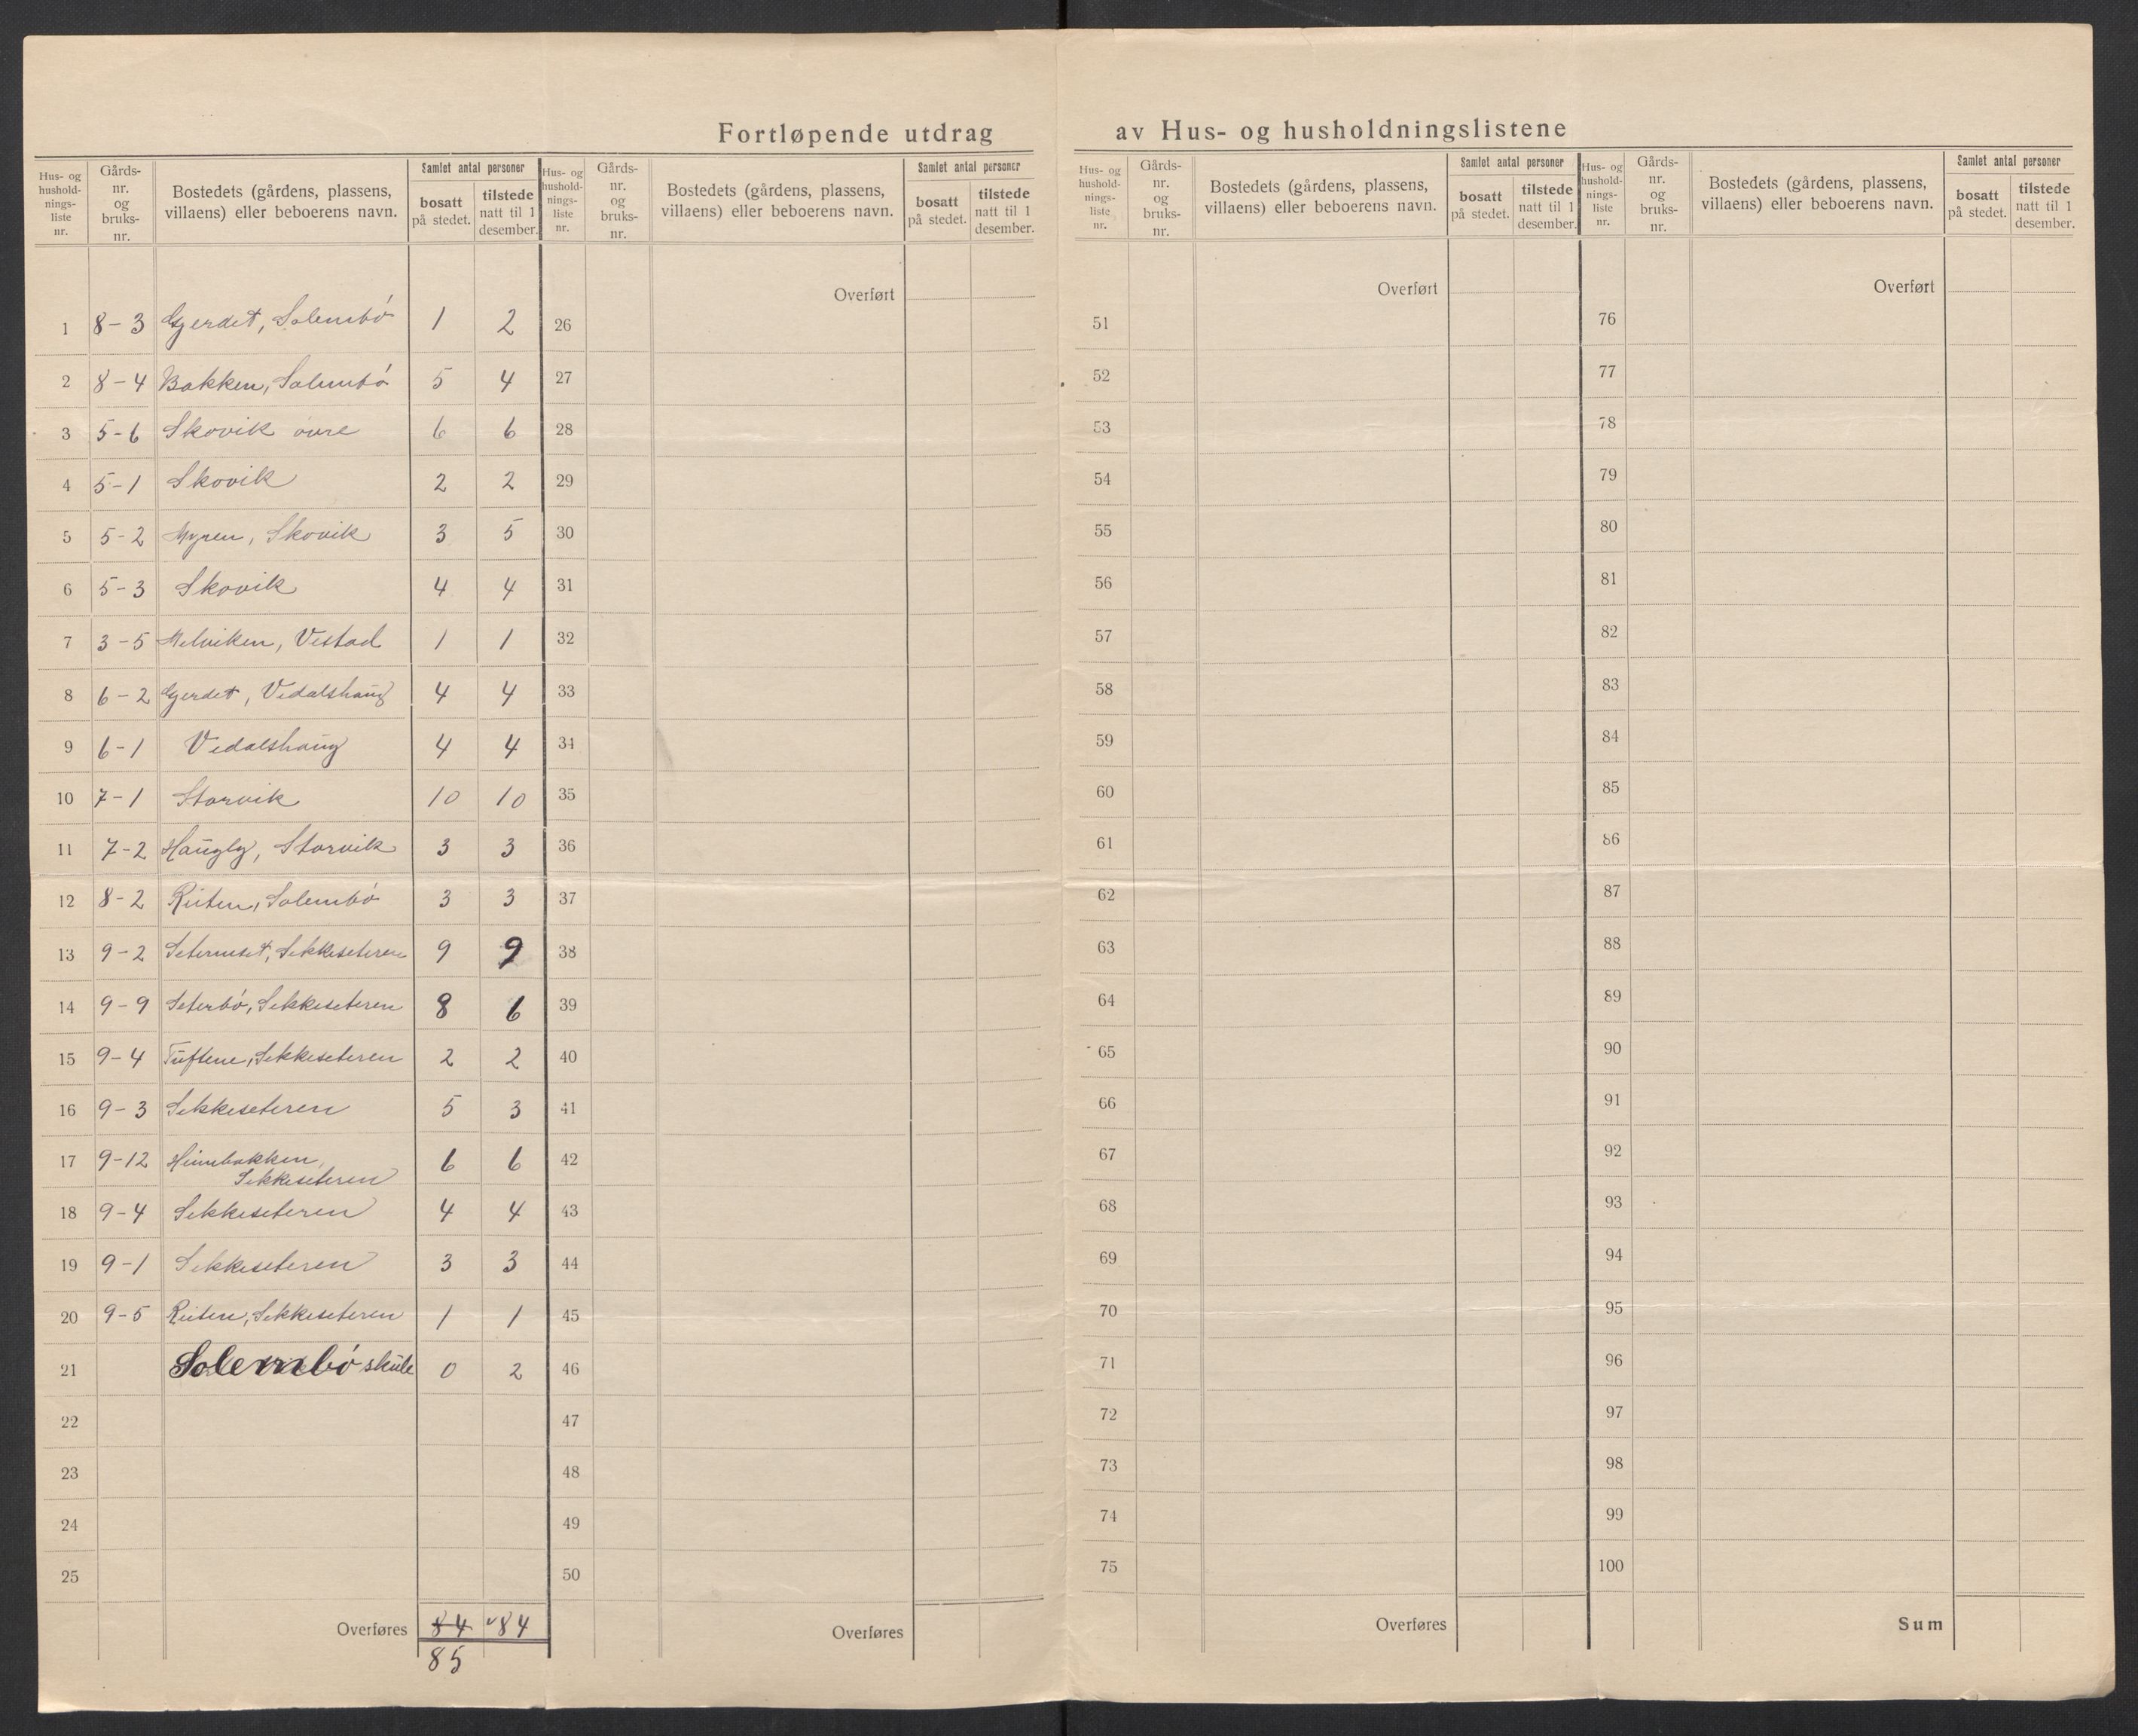 Fortløpende utdrag av Hus- og husholdningslistene
Hus- og hushold- nings- liste nr. | Gårds- nr. og bruks- nr. | Bostedets (gårdens, plassens, villaens) eller beboerens navn. | Samlet antal personer | bosatt på stedet. | tilstede natt til 1 desember.
1 8-3 Gjerdet, Solembø 1 2
2 8-4 Bakken, Solembø 5 4
3 5-6 Skovik øvre 6 6
4 5-1 Skovik 2 2
5 5-2 Myren, Skovik 3 5
6 5-3 Skovik 4 4
7 3-5 Melviken, Vestad 1 1
8 6-2 Gjerdet, Vedalshaug 4 4
9 6-1 Vedalshaug 4 4
10 7-1 Storvik 10 10
11 7-2 Haugly, Storvik 3 3
12 8-2 Reiten, Solembø 3 3
13 9-2 Seterneset, Sekkeseteren 9 9
14 9-9 Seterbø, Sekkeseteren 8 6
15 9-4 Tuftene, Sekkeseteren 2 2
16 9-3 Sekkeseteren 5 3
17 9-12 Sekkeseteren 6 6
18 9-4 Sekkeseteren 4 4
19 9-1 Sekkeseteren 3 3
20 9-5 Reiten, Sekkeseteren 1 1
21 Solembø skule 0 2
22
23
24
25
Overføres 84 84
85
Hus- og hushold- nings- liste nr. | Gårds- nr. og bruks- nr. | Bostedets (gårdens, plassens, villaens) eller beboerens navn. | Samlet antal personer | bosatt på stedet. | tilstede natt til 1 desember.
Overført
26
27
28
29
30
31
32
33
34
35
36
37
38
39
40
41
42
43
44
45
46
47
48
49
50
Overføres
Hus- og hushold- nings- liste nr. | Gårds- nr. og bruks- nr. | Bostedets (gårdens, plassens, villaens) eller beboerens navn. | Samlet antal personer | bosatt på stedet. | tilstede natt til 1 desember.
Overført
51
52
53
54
55
56
57
58
59
60
61
62
63
64
65
66
67
68
69
70
71
72
73
74
75
Overføres
Hus- og hushold- nings- liste nr. | Gårds- nr. og bruks- nr. | Bostedets (gårdens, plassens, villaens) eller beboerens navn. | Samlet antal personer | bosatt på stedet. | tilstede natt til 1 desember.
Overført
76
77
78
79
80
81
82
83
84
85
86
87
88
89
90
91
92
93
94
95
96
97
98
99
100
Sum